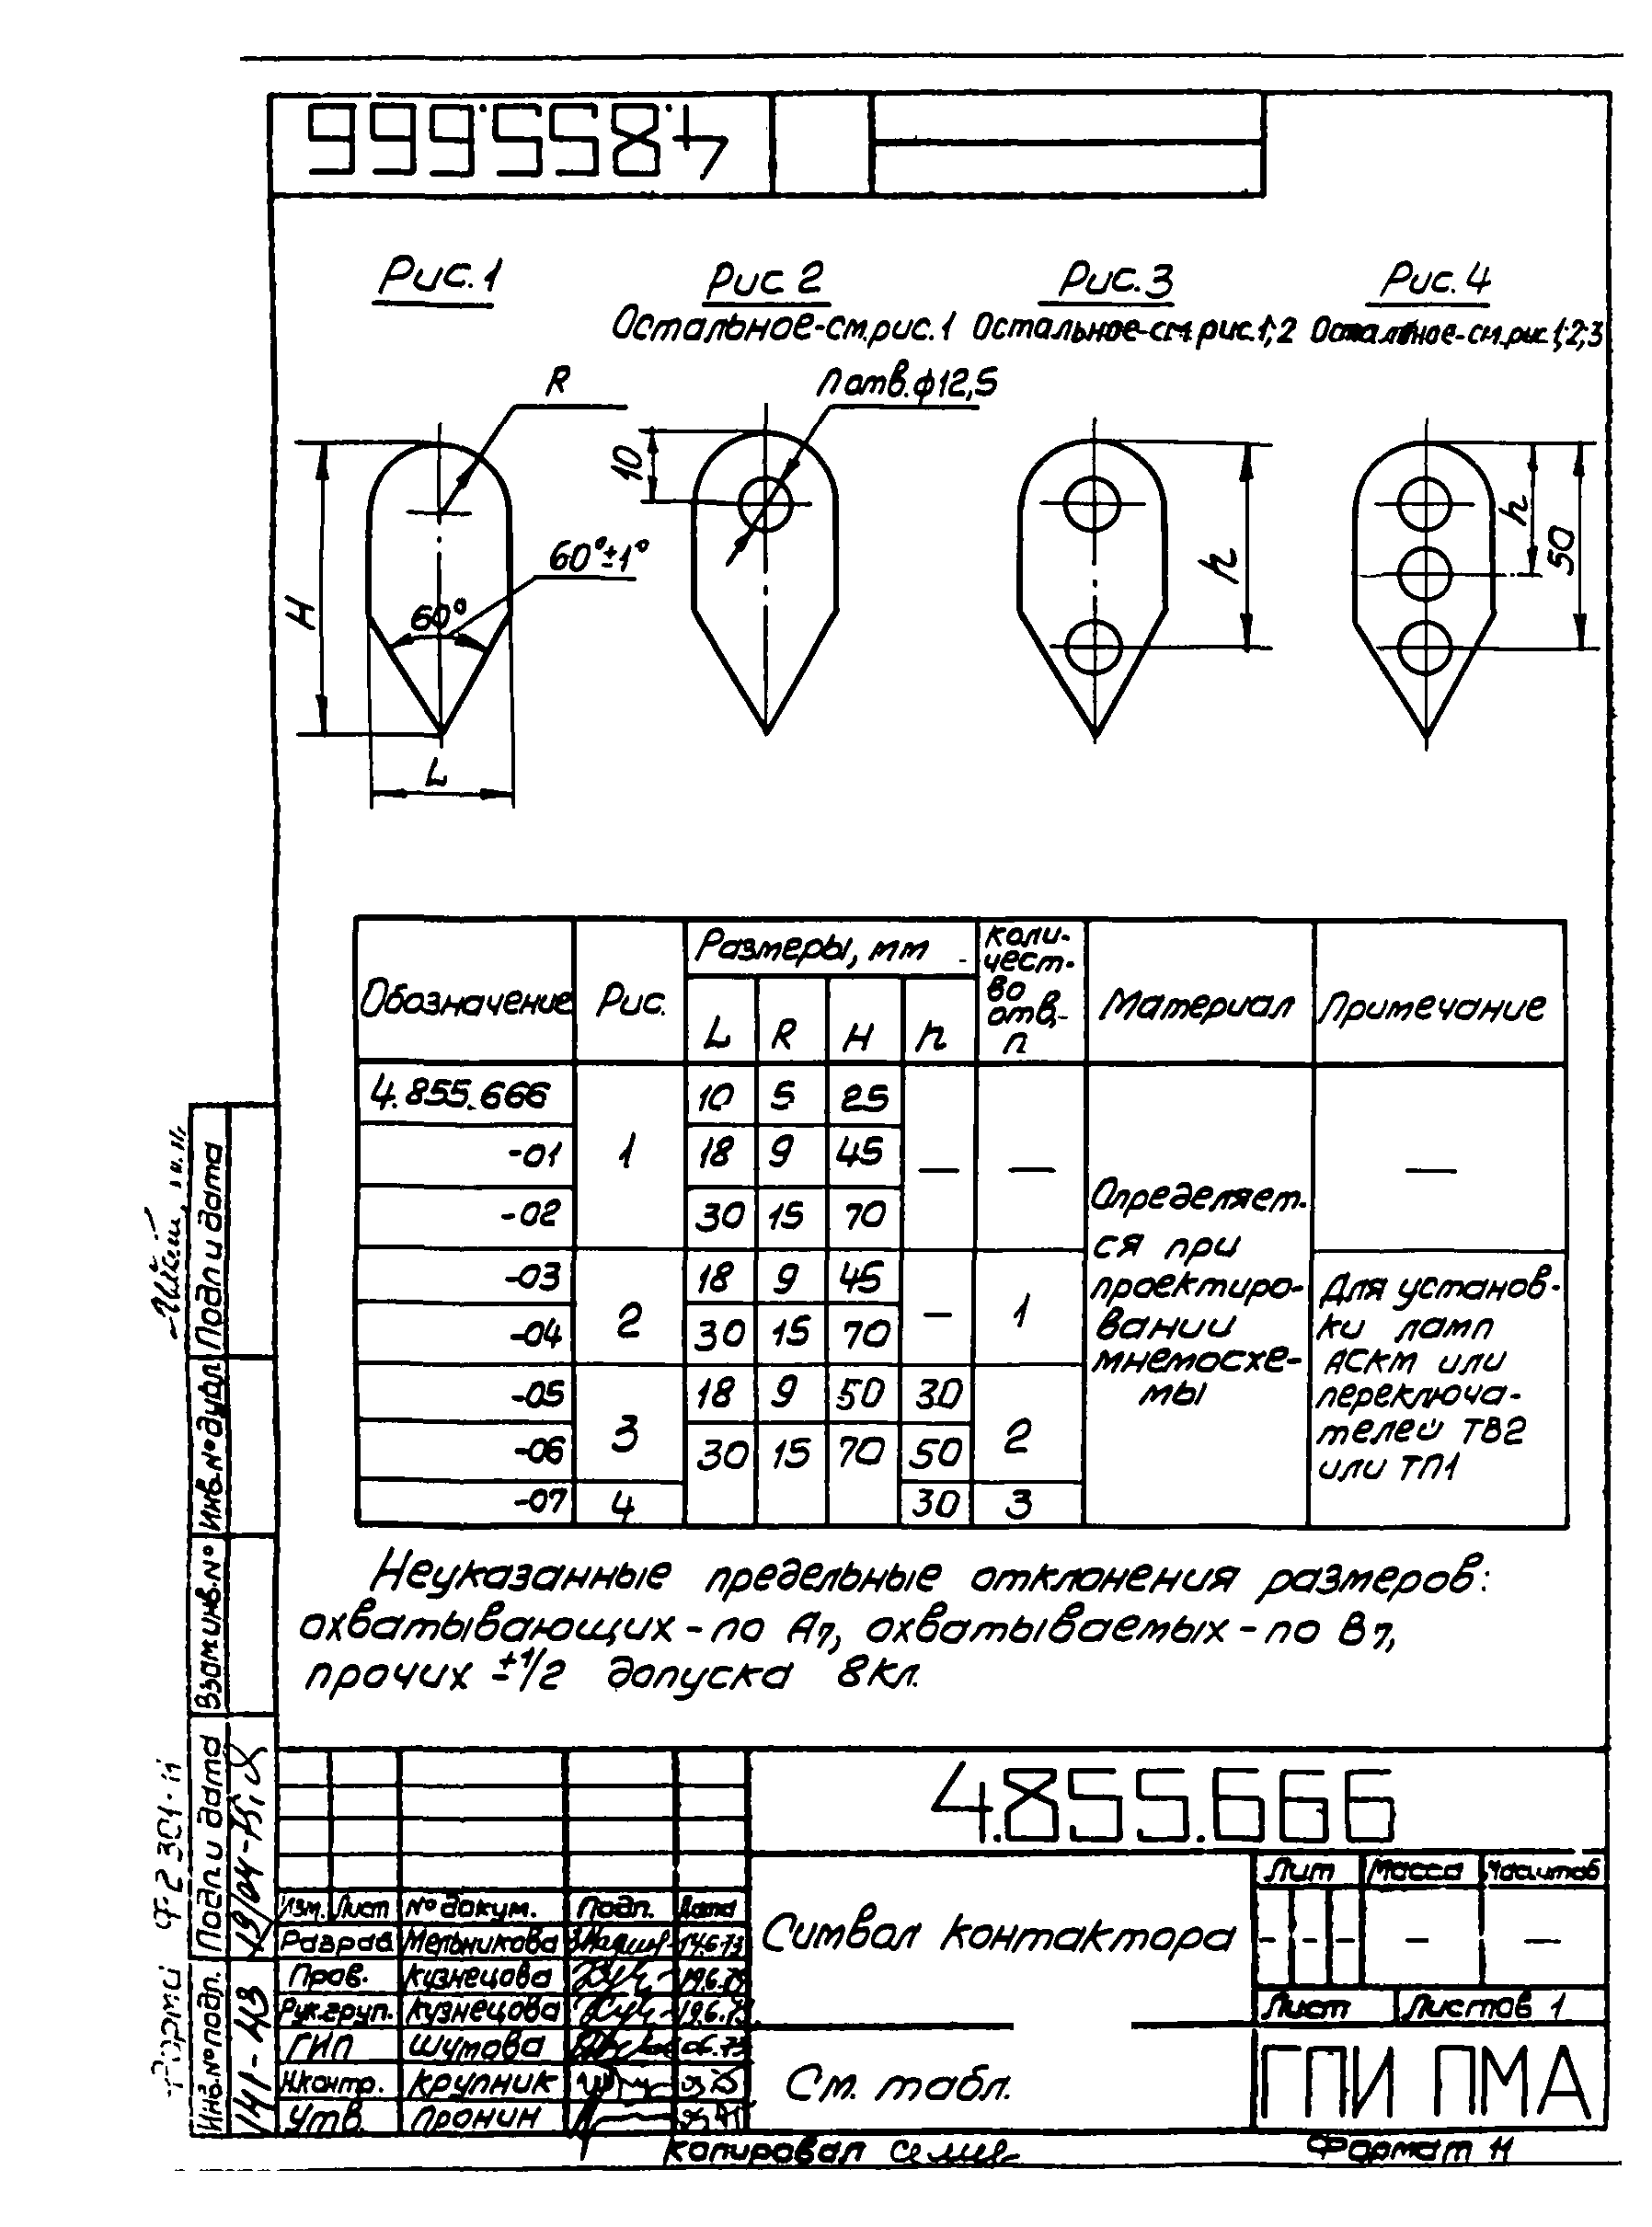 4.855.666
Рис.1
Рис 2
Остальное-см.рис.1
Рис.3
Остальное-см.рис.1;2
Рис.4
Остальное-см.рис.1;2;3
R
H
60°
60°±1°
L
n отв.ф12,5
10
h
h
50
Обозначение Рис. Размеры, мм Коли-
чест-
во
отв,-
n Материал Примечание
L R H h
4.855.666 1 10 5 25 — — —
-01 18 9 45
-02 30 15 70
-03 2 18 9 45 — 1
-04 30 15 70
-05 3 18 9 50 30 2
-06 30 15 70 50
-07 4 30 3
Определяет-
ся при
проектиро-
вании
мнемосхе-
мы
Для установ-
ки ламп
АСКМ или
переключа-
телей ТВ2
или ТП1
Неуказанные предельные отклонения размеров:
охватывающих - по А7, охватываемых - по В7,
прочих ±1/2 допуска 8кл.
Подп и дата
Инв.№ дубл
Взам инв.№
Подп. и дата
Инв.№ подп.
141-43
Форма Ф2 301-11
4.855.666
Изм. Лист № докум. Подп. Дата
Разраб Мельникова 14.6.73
Пров. Кузнецова
Рук.груп. Кузнецова
ГИП Шутова
Н.контр. Крупник
Утв. Пронин
Символ контактора
Лит Масса Масштаб
- - - — —
Лист Листов 1
См. табл.
ГПИ ПМА
Копировал
Формат 11